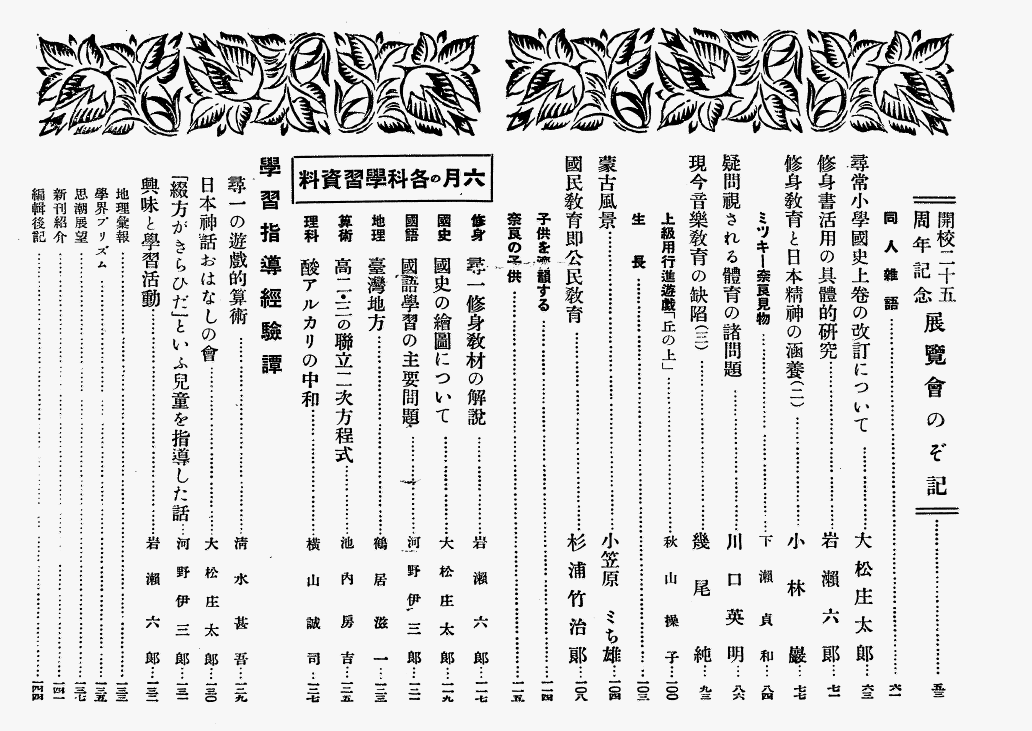 開校二十五周年記念 展覽會のぞ記……五三
同人雜語……六一
尋常小學國史上卷の改訂について……大松庄太郎……六三
修身書活用の具體的研究……岩瀨六郎……七一
修身敎育と日本精神の涵養(二)……小林巖……七七
ミツキー奈良見物……下瀨貞和……八四
疑問視される體育の諸問題……川口英明……八六
現今音樂敎育の缺陷(三)……幾尾純……九三
上級用行進遊戲「丘の上」……秋山操子……一〇〇
生長……一〇三
蒙古風景……小笠原ミち雄……一〇四
國民敎育卽公民敎育……杉浦竹治郞……一〇八
子供を禮讃する……一一四
奈良の子供……一一五
六月の各科學習資料
修身 尋一修身敎材の解說……岩瀨六郞……一一七
國史 國史の繪圖について……大松庄太郞……一一九
國語 國語學習の主要問題……河野伊三郞……一二一
地理 臺灣地方……鶴居滋一……一二三
算術 高二・三の聯立二次方程式……池內房吉……一二五
理科 酸アルカリの中和……橫山誠司……一二七
學習指導經驗譚
尋一の遊戲的算術……淸水甚吾……一二九
日本神話おはなしの會……大松庄太郞……一三〇
「綴方がきらひだ」といふ兒童を指導した話……河野伊三郞……一三一
興味と學習活動……岩瀨六郞……一三二
地理彙報……一三三
學界プリズム……一三五
思潮展望……一三七
新刊紹介……一四一
編輯後記……一四四